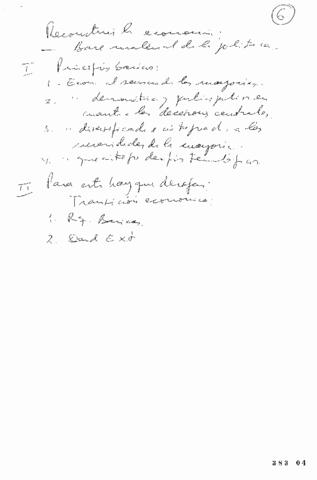 6
Reconstruir la economía:
— Base material de la política.
I Principios básicos:
1. Econ. al servicio de las mayorías.
2. " democrática y participativa en
cuanto a las decisiones centrales,
3. " diversificada e integrad. a las
necesidades de la mayoría.
4. "
II Para esto hay que
Transición económica:
1. Básicas
2. Ext
383 04